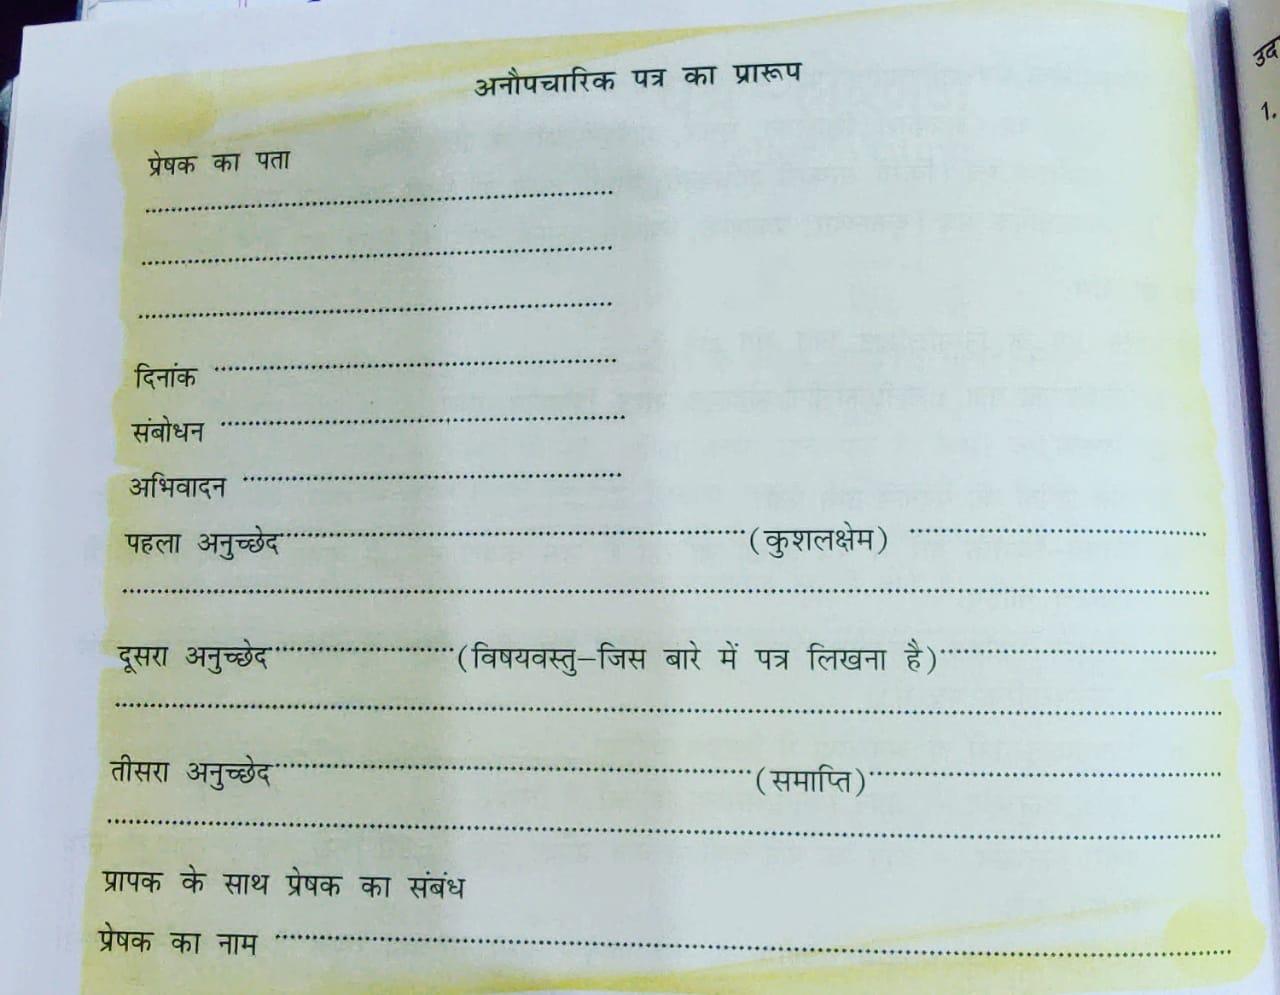 अनौपचारिक पत्र का प्रारूप
प्रेषक का पता
दिनांक
संबोधन
अभिवादन
पहला अनुच्छेद (कुशलक्षेम)
दूसरा अनुच्छेद (विषयवस्तु–जिस बारे में पत्र लिखना है)
तीसरा अनुच्छेद (समाप्ति)
प्रापक के साथ प्रेषक का संबंध
प्रेषक का नाम
1.